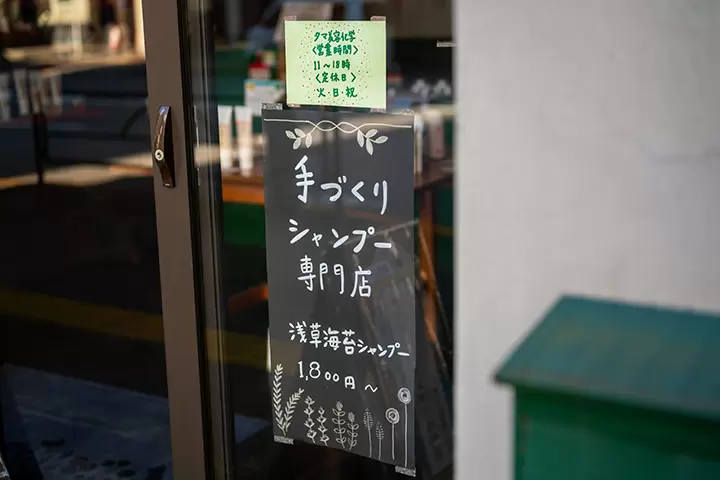 タマ美容化学
〈営業時間〉
11〜18時
〈定休日〉
火・日・祝
手づくり
シャンプー
専門店
浅草海苔シャンプー
1,800円〜